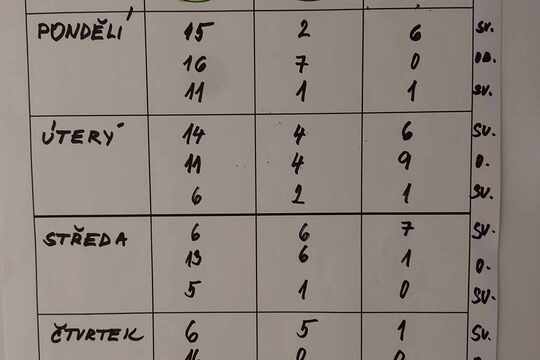 PONDĚLÍ 15 2 6 SV.
16 7 0 OD.
11 1 1 SV.
ÚTERÝ 14 4 6 SV.
11 4 9 O.
6 2 1 SV.
STŘEDA 6 6 7 SV.
13 6 1 O.
5 1 0 SV.
ČTVRTEK 6 5 1 SV.